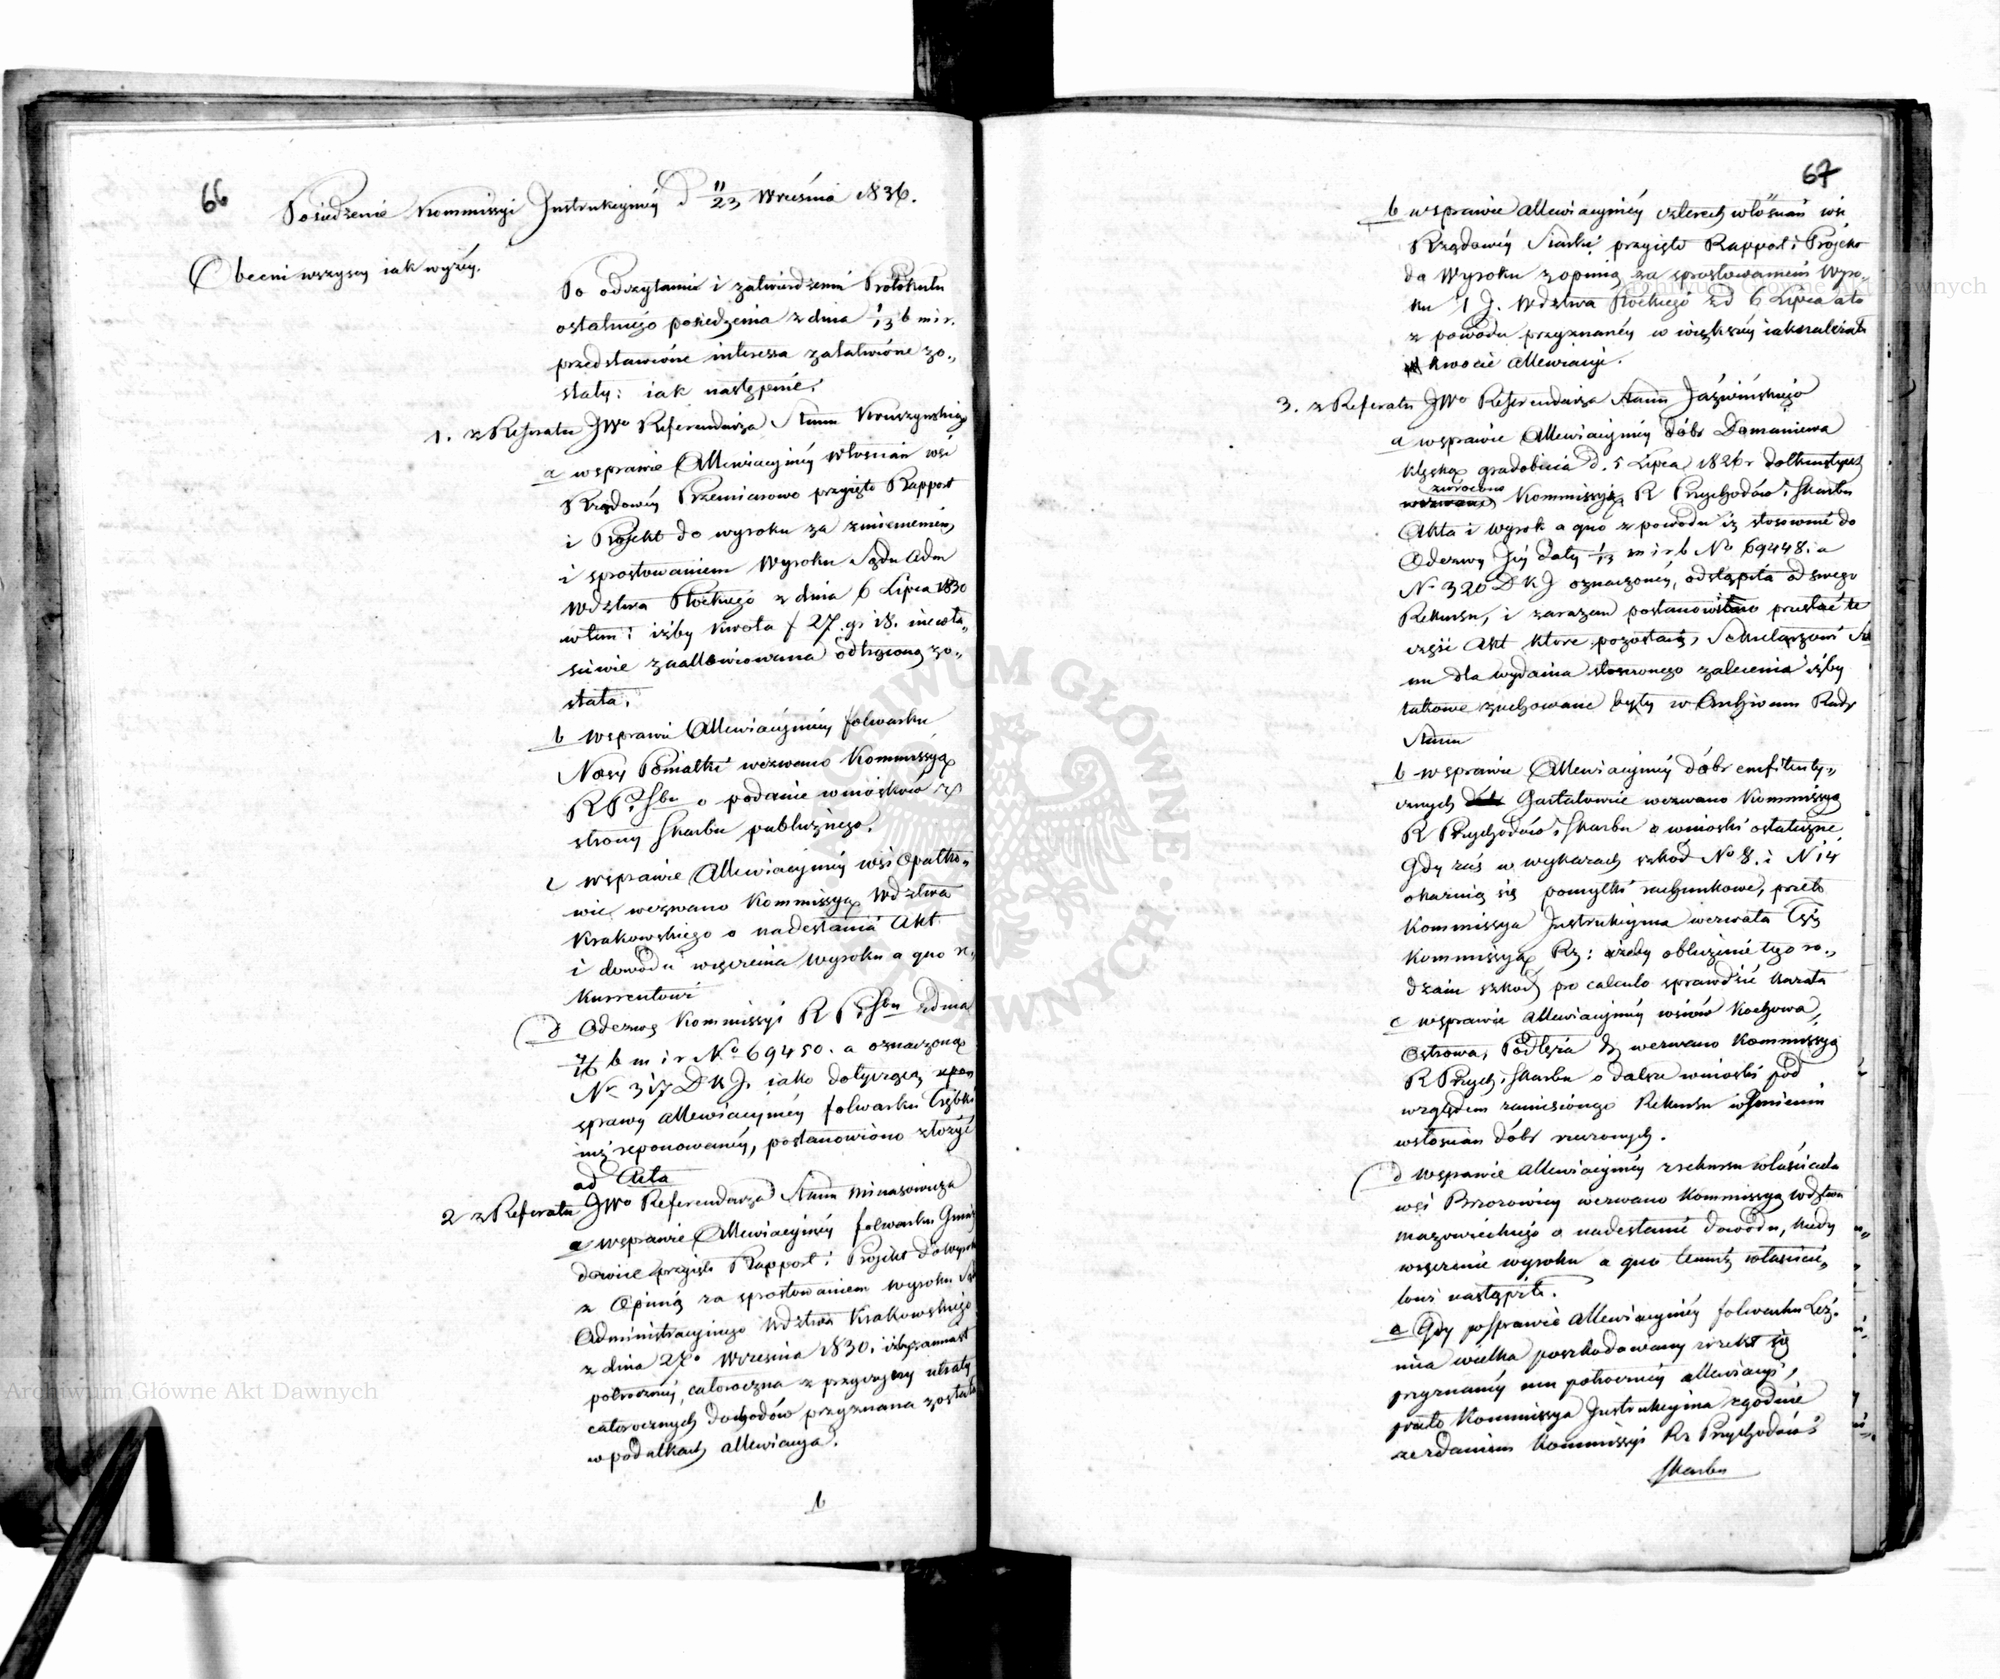 66
Posiedzenie Kommissyi Instrukcyjnéy D 11/23 Września 1836.
Obecni wszyscy iak wyżéy.
Po odczytaniu i zatwierdzeniu Protokułu
ostatniego posiedzenia z dnia 1/13 b m i r.
przedstawione interessa załatwione zo„
stały: iak następnie.
1. z Referatu JWo Referendarza Stanu Kruszyńskiego
a w sprawie Allewiacyjnéy włościan wsi
Rządowéy Przemiarowo przyięto Rapport
i Projekt do wyroku za zmienieniem
i sprostowaniem Wyroku Sądu Adm
Wdztwa Płockiego z dnia 6 Lipca 1830
w tem: iżby kwota f 27. gr 18. niewła„
ściwie zaallewiowana odtrąconą zo„
stała.
b w sprawie Allewiacyjnéy folwarku
Nosy Poniatki wezwano Kommissyą
R P i Sbu o podanie wniosków ze
strony Skarbu publicznego.
c w sprawie Allewiacyjnéy wsi Opatko„
wic, wezwano Kommissyą Wdztwa
Krakowskiego o nadesłanie Akt
i dowodu wręczenia wyroku a quo re„
kurrentowi
d Odezwę Kommissyi R P i Sbu z dnia
b m i r No 69450. a oznaczoną
No 317 D K J. iako dotyczącą
sprawy allewiacyjnéy folwarku Trębki
iuż reponowanéy, postanowiono złożyć
ad Acta
2 z Referatu JWo Referendarza Stanu Minasowicza
a w sprawie Allewiacyjnéy folwarku
przyięto Rapport i Projekt do wyroku
z Opinią za sprostowaniem wyroku Sądu
Administracyjnego Wdztwa Krakowskiego
z dnia 27o Września 1830. iżby zamiast
półroczney, całoroczna z przyczyny utraty
całorocznych dochodów przyznana została
w podatkach allewiacya.
b
67
b w sprawie allewiacyjnéy czterech włościan wsi
Rządowéy Siarki przyięto Rapport i Projekt
do Wyroku z opinią za sprostowaniem Wyro„
ku Wdztwa Płockiego z d 6 Lipca a to
z powodu przyznanéy w większéy iak należało
kwocie allewiacyi.
3. z Referatu JWo Referendarza Stanu Jaźwińskiego
a w sprawie Allewiacyjnéy dóbr Domaniewa
klęską gradobicia d. 5 Lipca 1826 r dotkniętych
zwrócono
wezwano Kommissyą R Przychodów i Skarbu
Akta i wyrok a quo z powodu iż stosownie do
Odezwy Jéy daty 1/13 m i r b No 69448. a
No 320 D K J oznaczonéy, odstąpiła od swego
Rekursu, i zarazem postanowiono przesłać te
część Akt które pozostaią, Sekretarzowi Sta
nu dla wydania stosownego zalecenia iżby
takowe zachowane były w Archivum Rady
Stanu
b w sprawie Allewiacyjnéy dóbr emfiteuty„
cznych Gartatowic wezwano Kommissyą
R Przychodów i Skarbu o wnioski ostateczne.
Gdy zaś w wykazach szkód No 8. i N 14
okazuią się pomyłki rachunkowe, przeto
Kommissya Instrukcyjna wezwała Tęż
Kommissyą Rz: ażeby obliczenie tego ro„
dzaiu szkody pro calculo sprawdzić kazała
c w sprawie allewiacyjnéy wsiów Kochowa,
Ostrowa, Podłęzia wezwano Kommissyą
R Przych. i Skarbu o dalsze wnioski pod
względem zaniesionego Rekursu w Imieniu
włościan dóbr rzeczonych.
d W sprawie allewiacyjnéy z rekursu właściciela
wsi Brzozowicy wezwano Kommissyą Wdztwa
Mazowieckiego o nadesłanie dowodu, kiedy
wręczenie wyroku a quo temuż właścicie„
lowi nastąpiło.
e Gdy po sprawie allewiacyjnéy folwarku Leź.
nica wielka poszkodowany zrzekł się
przyznanéy mu półroczney allewiacyi,
przeto Kommissya Instrukcyjna zgodnie
ze zdaniem Kommissyi Rz Przychodów i
Skarbu